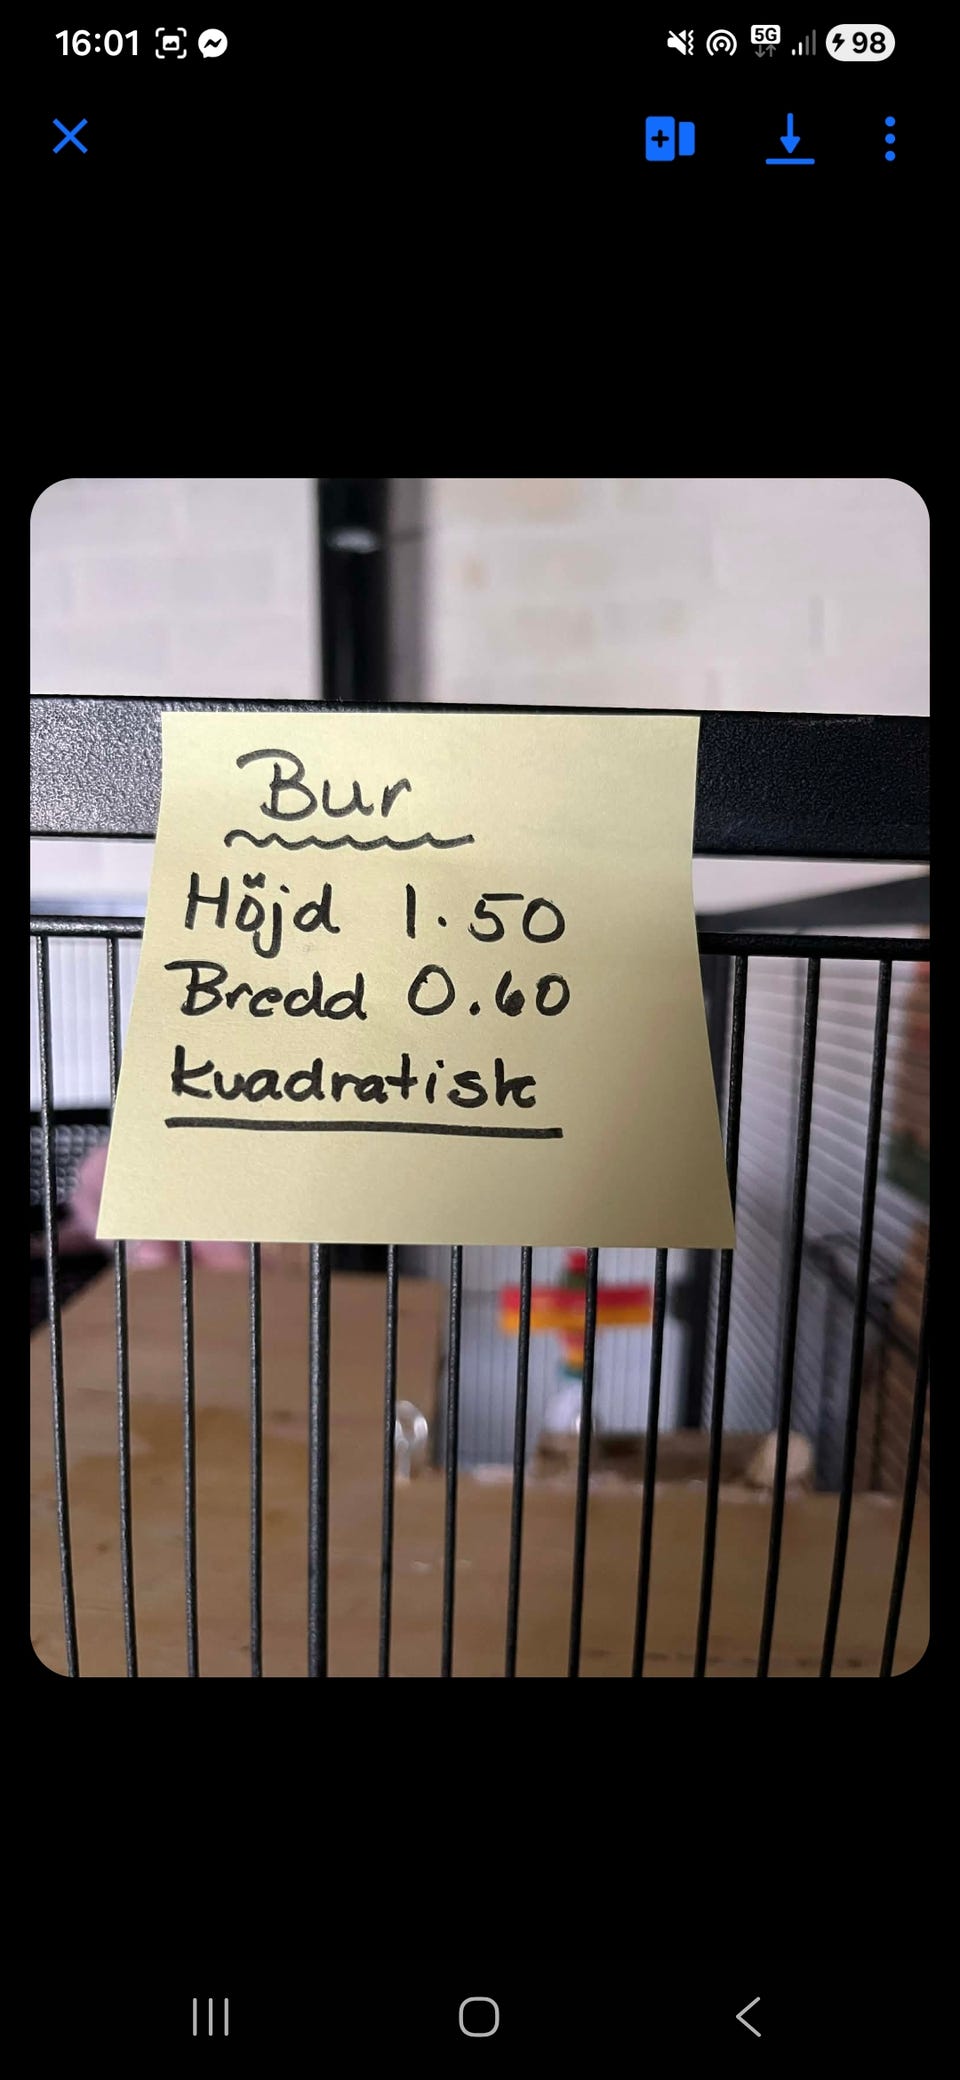 16:01
5G
98
Bur
Höjd 1.50
Bredd 0.60
Kvadratisk